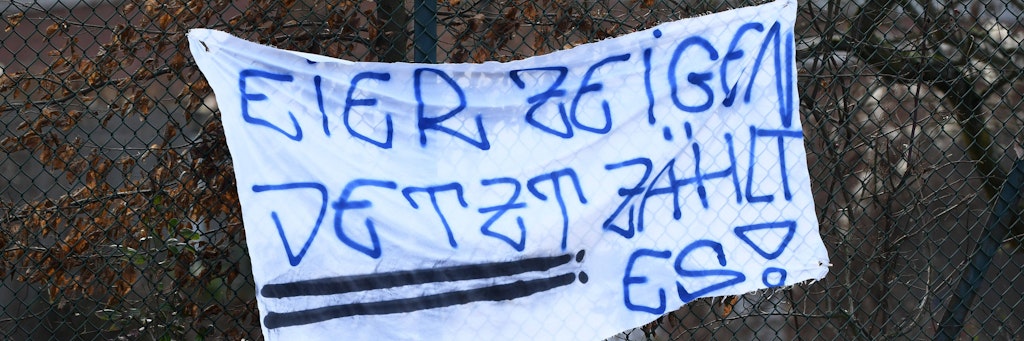 EiER ZEiGEN
JETZT ZÄHLT
ES!